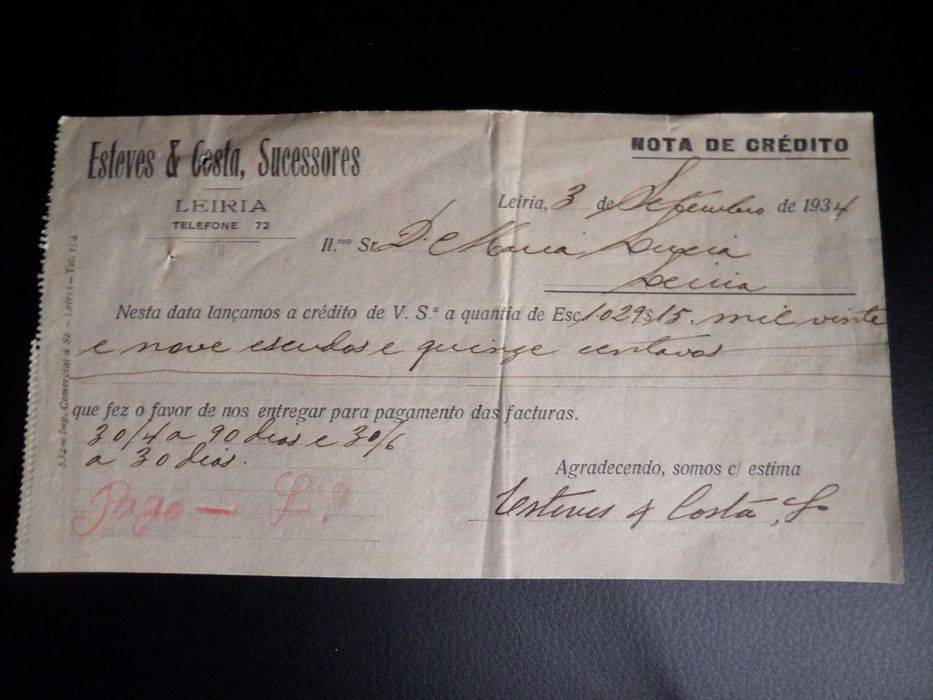 Esteves & Costa, Sucessores
LEIRIA
TELEFONE 72
NOTA DE CRÉDITO
Leiria, 3 de Setembro de 1934
Il.mo Sr. D. Maria Lucia
Leiria
Nesta data lançamos a crédito de V. S.ª a quantia de Esc. 1029$15. mil vinte
e nove escudos e quinze centavos
que fez o favor de nos entregar para pagamento das facturas.
30/4 a 90 dias e 30/6
a 30 dias.
Agradecendo, somos c/ estima
Esteves & Costa, S.
Pago —
Imp. Comercial á Sé — Leiria — Tel.